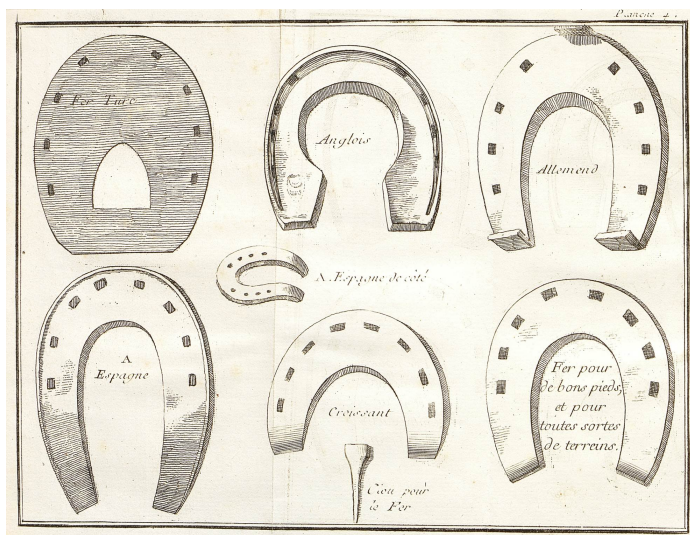 Planche 4.
Fer Turc
Anglois
Allemend
A. Espagne de côté
A
Espagne
Croissant
Fer pour
de bons pieds,
et pour
toutes sortes
de terreins.
Clou pour
le Fer